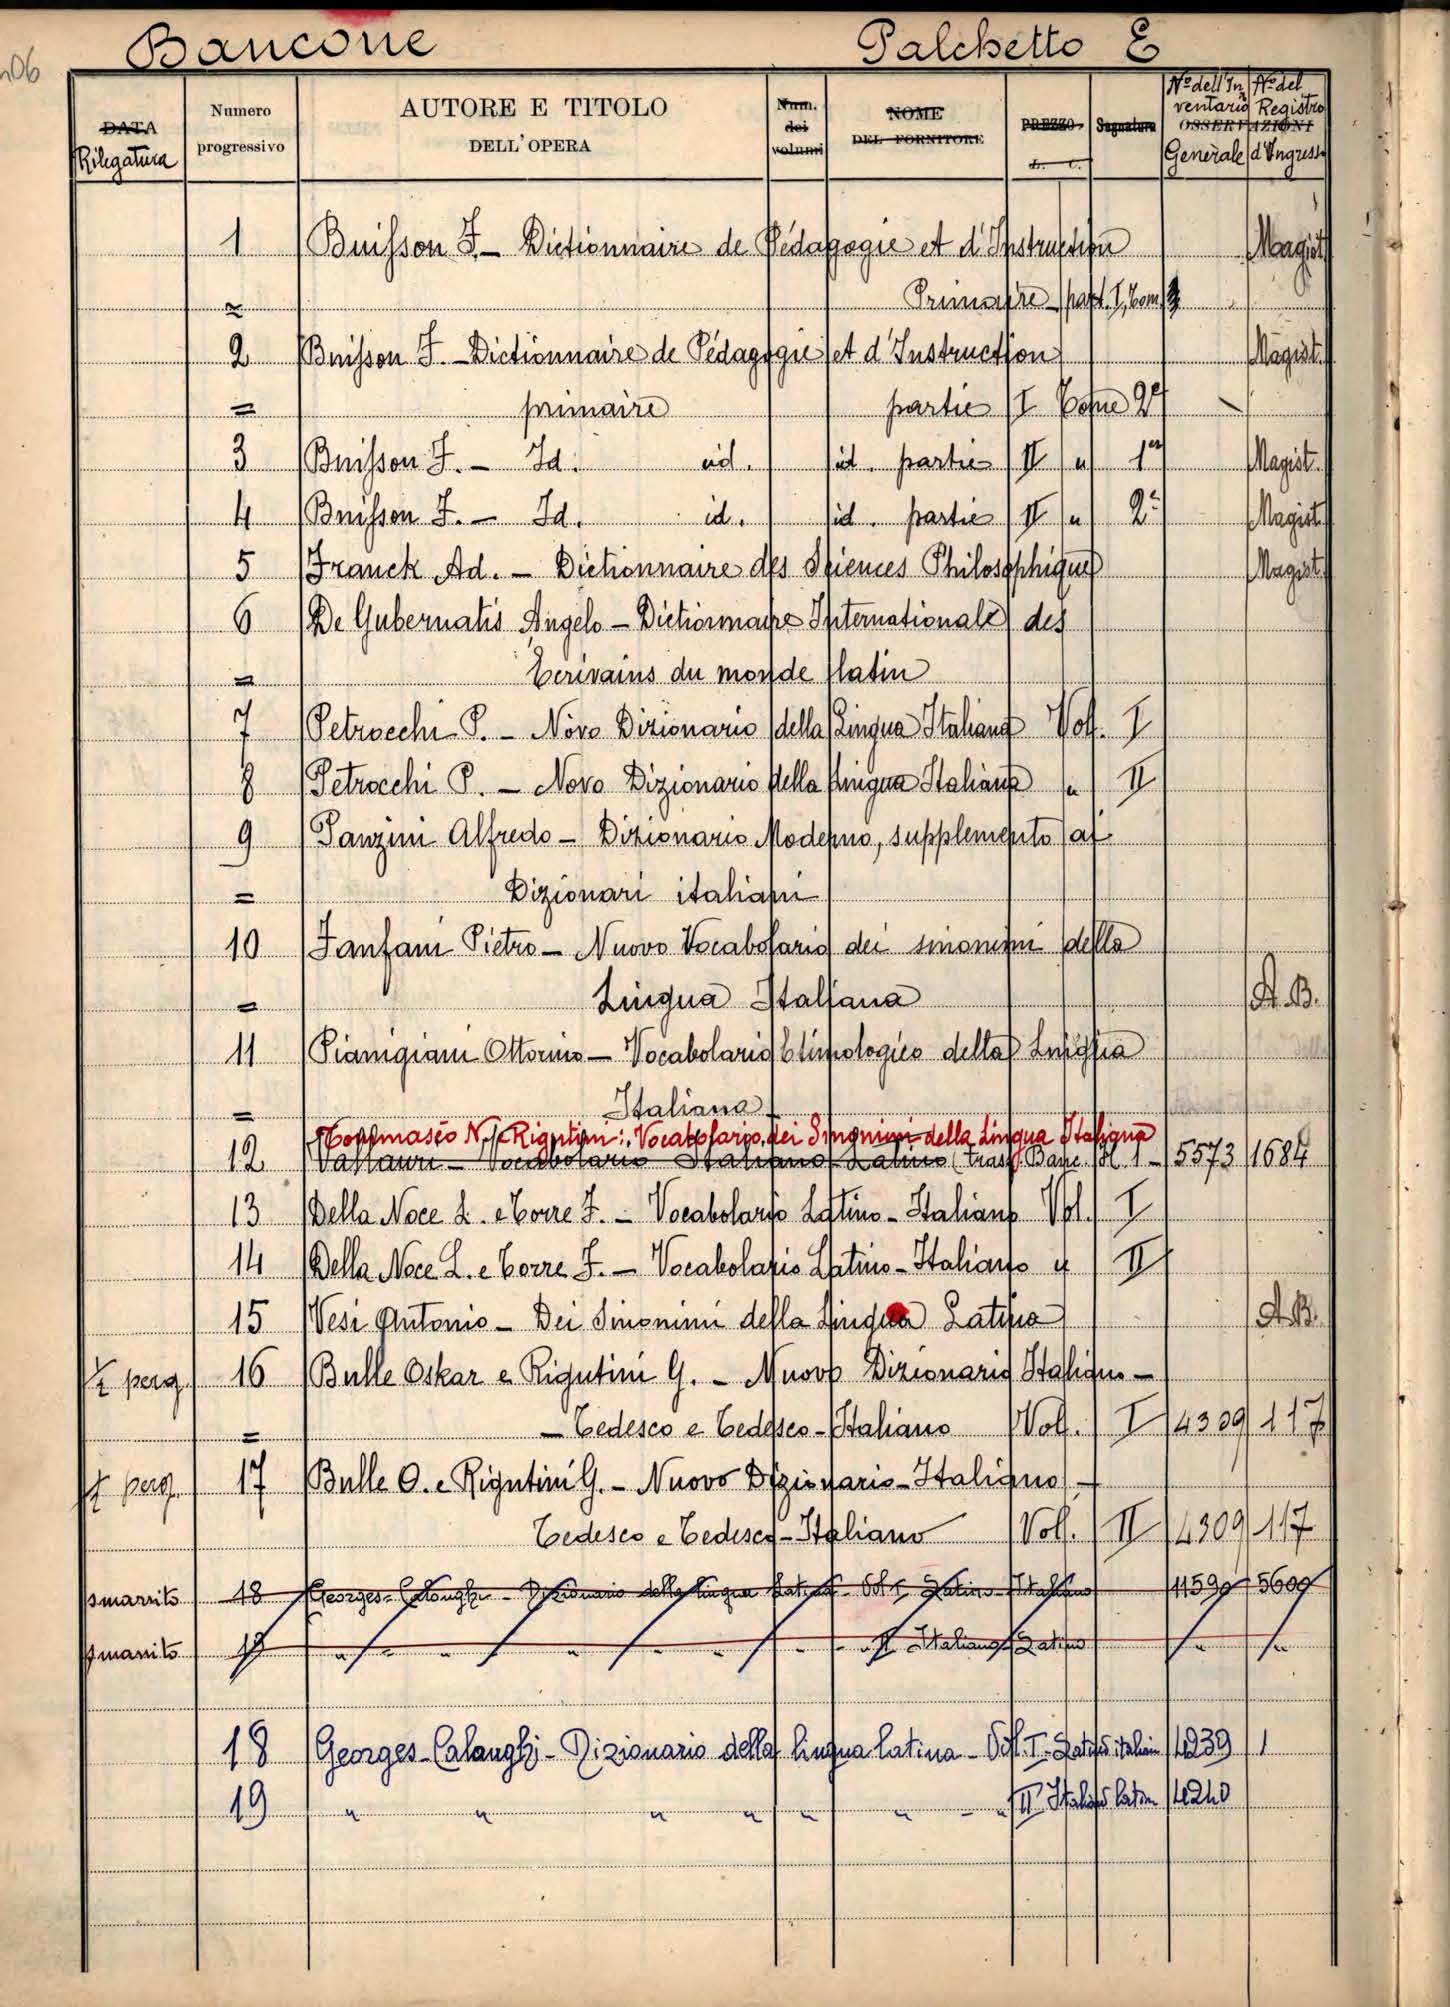 Bancone Palchetto E
DATA Rilegatura Numero progressivo AUTORE E TITOLO DELL'OPERA Num. dei volumi NOME DEL FORNITORE PREZZO L. C. Segnatura OSSERVAZIONI N.º dell'Inventario Generale N.º del Registro d'Ingresso
1 Buisson F. – Dictionnaire de Pédagogie et d'Instruction Magist.
= Primaire – part. I, Tom.
2 Buisson F. – Dictionnaire de Pédagogie et d'Instruction Magist.
= primaire partie I Tome 2e
3 Buisson F. – Id. id. id. partie II " 1er Magist.
4 Buisson F. – Id. id. id. partie II " 2e Magist.
5 Franck Ad. – Dictionnaire des Sciences Philosophiques Magist.
6 De Gubernatis Angelo – Dictionnaire Internationale des
= Ecrivains du monde latin
7 Petrocchi P. – Nòvo Dizionario della Lingua Italiana Vol. I
8 Petrocchi P. – Novo Dizionario della Lingua Italiana " II
9 Panzini Alfredo – Dizionario Moderno, supplemento ai
= Dizionari italiani
10 Fanfani Pietro – Nuovo Vocabolario dei sinonimi della
= Lingua Italiana A.B.
11 Pianigiani Ottorino – Vocabolario Etimologico della Lingua
= Italiana
Tommaseo N. e Rigutini: Vocabolario dei Sinonimi della Lingua Italiana
12 Vallauri – Vocabolario Italiano-Latino (trasf. Banc. H. 1 – 5573 1684
13 Della Noce L. e Torre F. – Vocabolario Latino-Italiano Vol. I
14 Della Noce L. e Torre F. – Vocabolario Latino-Italiano " II
15 Vesi Antonio – Dei Sinonimi della Lingua Latina A.B.
½ perg. 16 Bulle Oskar e Rigutini G. – Nuovo Dizionario Italiano –
= – Tedesco e Tedesco-Italiano Vol. I 4309 117
½ perg. 17 Bulle O. e Rigutini G. – Nuovo Dizionario-Italiano –
Tedesco e Tedesco-Italiano Vol. II 4309 117
smarrito 18 Georges-Calonghi – Dizionario della lingua latina – Vol. I Latino-Italiano 11590 5600
smarrito 19 " " " " " " " " – II Italiano-Latino " "
18 Georges-Calonghi – Dizionario della lingua latina – Vol. I – Latino italiano 4239 1
19 " " " " " " – " II Italiano latino 4240